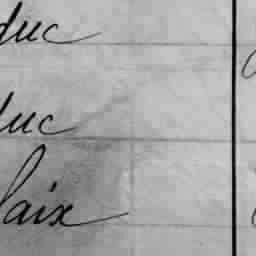 duc
duc
laix